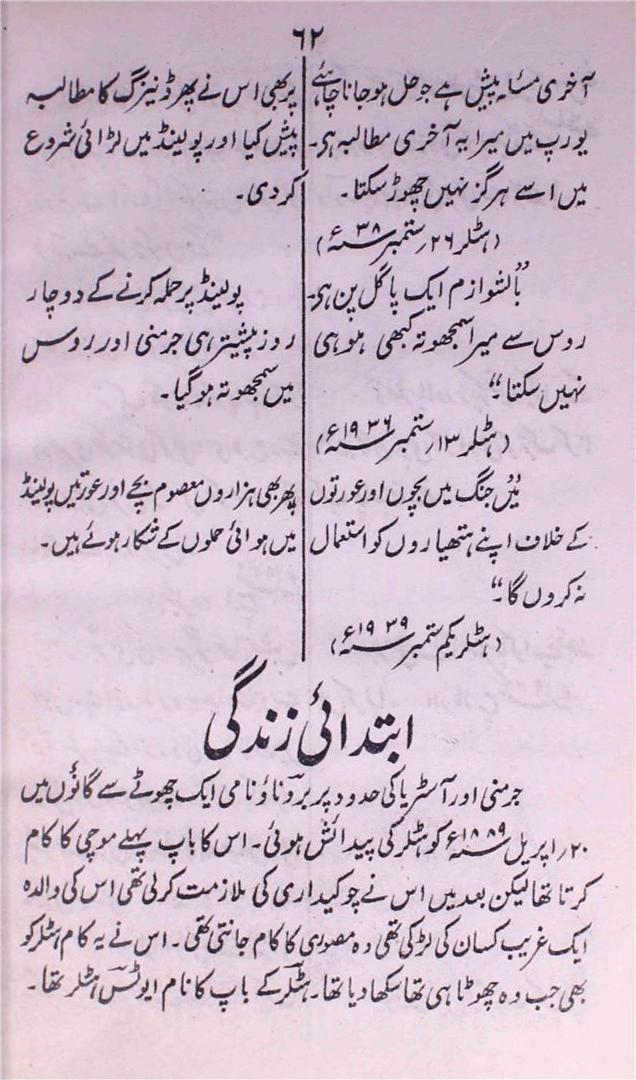 ۶۲
آخری مسئلہ پیش ہے جو حل ہو جانا چاہئے
یورپ میں میرا یہ آخری مطالبہ ہی۔
میں اسے ہرگز نہیں چھوڑ سکتا۔
(ہٹلر ۲۶؍ستمبر ۳۸ء)
"بالشوازم ایک پاگل پن ہی۔
روس سے میرا سمجھوتہ کبھی ہو ہی
نہیں سکتا۔"
(ہٹلر ۱۳؍ستمبر ۱۹۳۶ء)
"میں جنگ میں بچوں اور عورتوں
کے خلاف اپنے ہتھیاروں کو استعمال
نہ کروں گا۔"
(ہٹلر یکم ستمبر ۱۹۳۹ء)
پر بھی اس نے پھر ڈنیزگ کا مطالبہ
پیش کیا اور پولینڈ میں لڑائی شروع
کر دی۔
پولینڈ پر حملہ کرنے کے دو چار
روز پیشتر ہی جرمنی اور روس
میں سمجھوتہ ہو گیا۔
پھر بھی ہزاروں معصوم بچے اور عورتیں پولینڈ
میں ہوائی حملوں کے شکار ہوئے ہیں۔
ابتدائی زندگی
جرمنی اور آسٹریا کی حدود پر بروناؤ نامی ایک چھوٹے سے گاؤں میں
۲۰؍اپریل ۱۸۸۹ء کو ہٹلر کی پیدائش ہوئی۔ اس کا باپ پہلے موچی کا کام
کرتا تھا لیکن بعد میں اس نے چوکیداری کی ملازمت کر لی تھی اس کی والدہ
ایک غریب کسان کی لڑکی تھی وہ مصوری کا کام جانتی تھی۔ اس نے یہ کام ہٹلر کو
بھی جب وہ چھوٹا ہی تھا سکھا دیا تھا۔ ہٹلر کے باپ کا نام ایوئس ہٹلر تھا۔